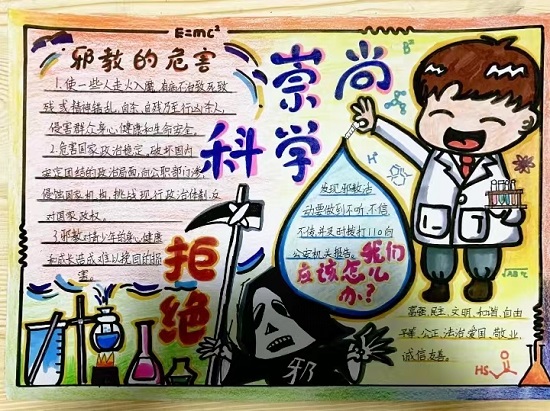 E=mc²
邪教的危害
崇尚
科学
1.使一些人走火入魔,有病不治致死致
残或精神错乱,自杀、自残乃至行凶杀人,
侵害群众身心健康和生命安全。
2.危害国家政治稳定,破坏国内
安定团结的政治局面,向公职部门渗
侵蚀国家机构,挑战现行政治体制,反
对国家政权。
3.邪教对青少年的身心健康
和成长造成难以挽回的损
害。
拒绝
发现邪教活
动要做到不听、不信、
不传,并及时拨打110向
公安机关报告。
我们
应该怎么
办?
邪
富强、民主、文明、和谐、自由
平等、公正、法治、爱国、敬业、
诚信、友善。
B²
H
HS
O